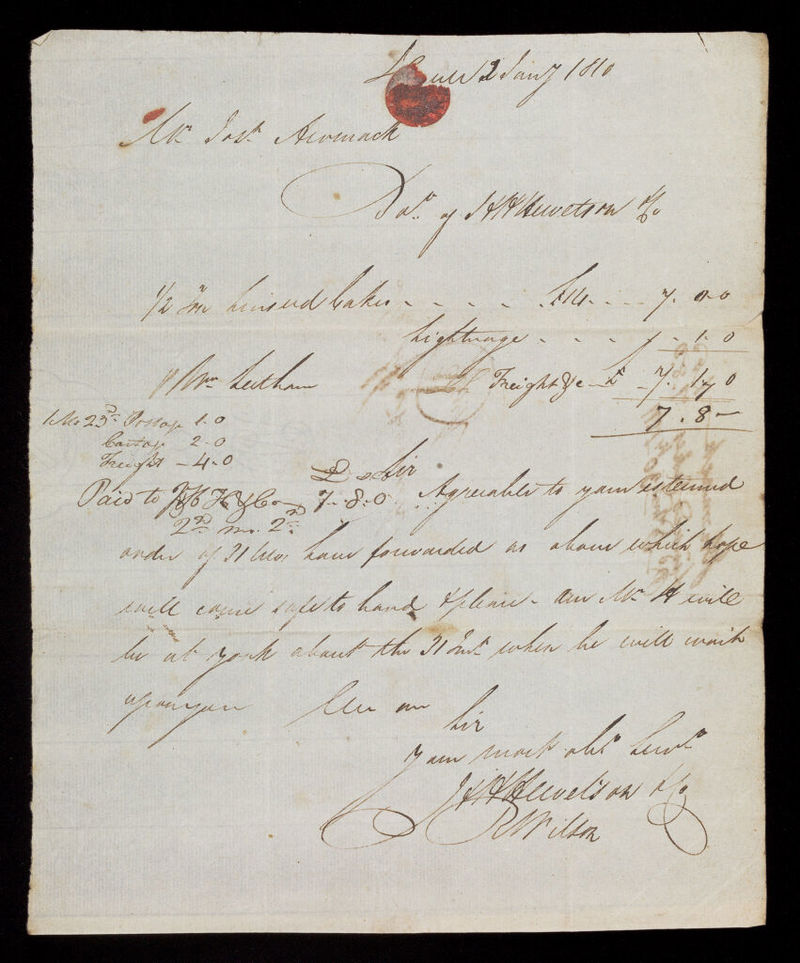 Hull 2 Jany 1810
Mr. Josh. Awmack
Bot. of J H Hewetson & Co
1/2 Ton Linseed Cakes - - - - - £14 - - - 7. 0 0
Lightrage - - - - - 1. 0
£ 7. 1. 0
p Wm. Leetham Freight &c 7 0
7. 8 -
1 Mo 23d. Postage 1. 0
Cartage 2. 0
Freight - 4. 0
Sir
Paid to & Co 7. 8. 0 Agreeable to your esteemed
2nd mo. 2nd.
order of 31 Ulto. have forwarded as above which hope
will come safe to hand & please - our Mr. H will
be at York about the 31 Inst. when he will wait
upon you We are
Sir
Your most obt. Servts.
J H Hewetson & Co
R Wilson